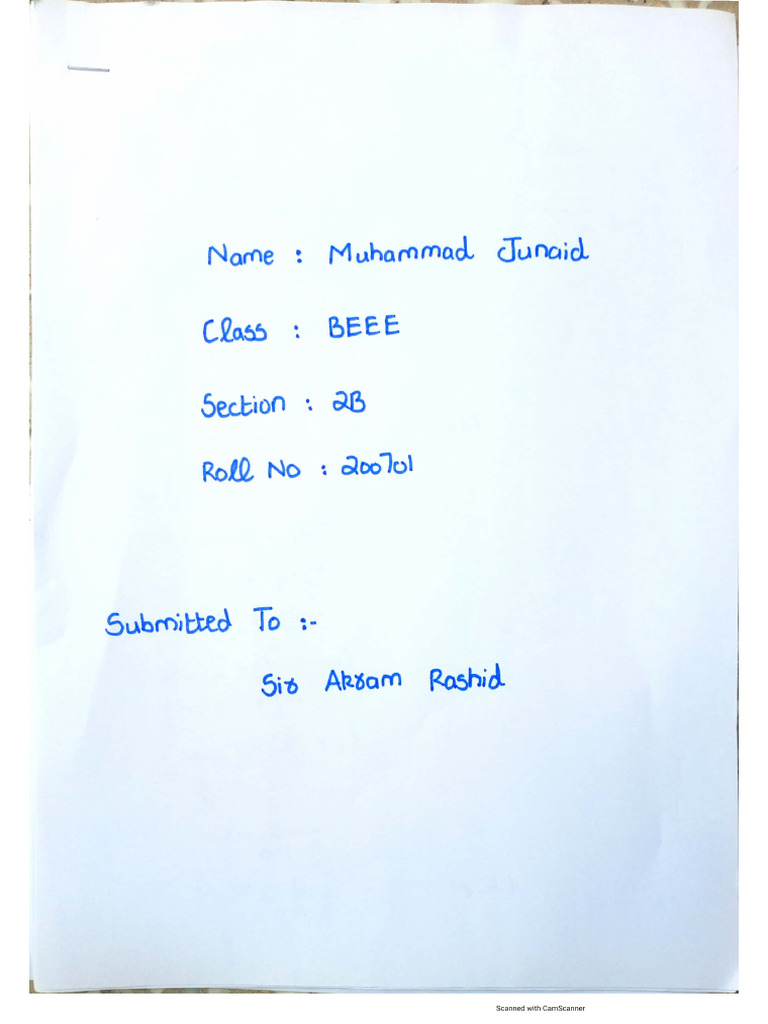 Name : Muhammad Junaid
Class : BEEE
Section : 2B
Roll No : 200701
Submitted To :-
Sir Akram Rashid
Scanned with CamScanner